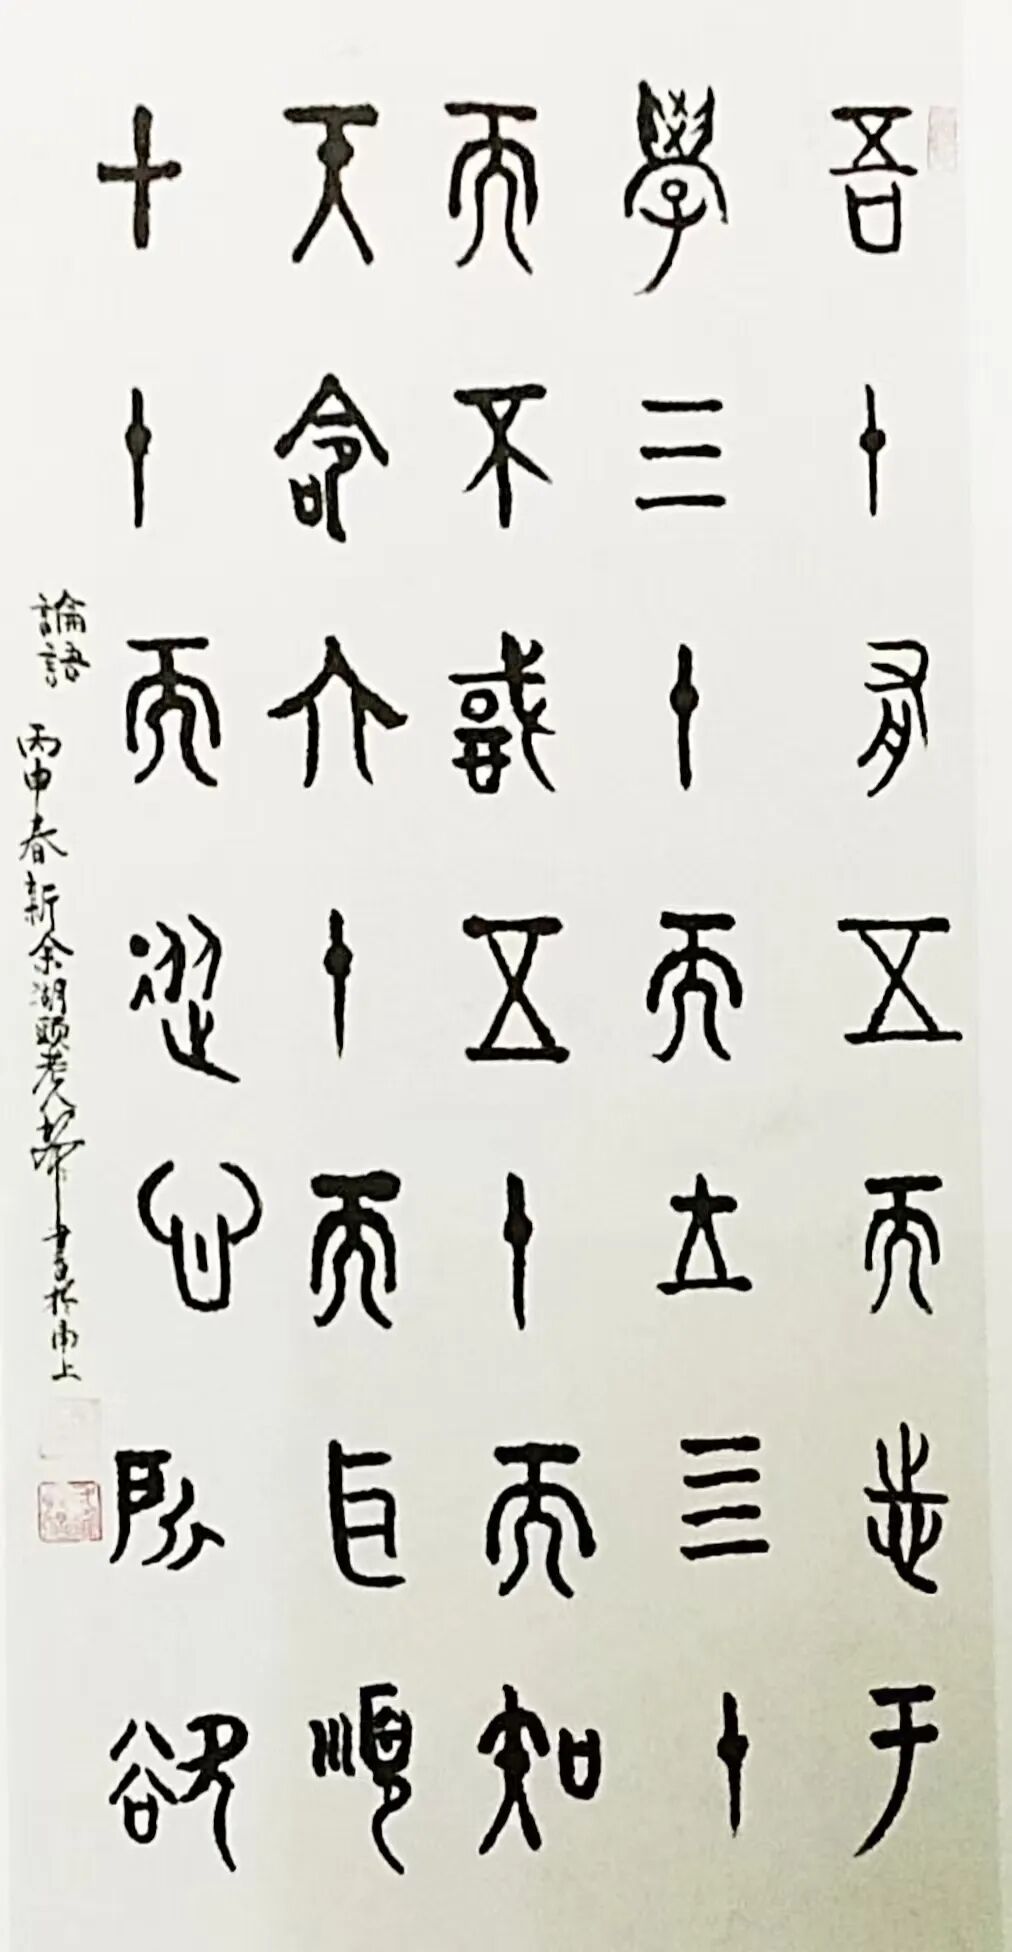 吾十有五而志于
學三十而立四十
而不惑五十而知
天命六十而耳順
七十而從心所欲
論語
丙申春新余湖頭老人 書於 上